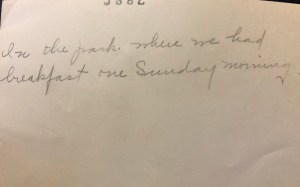 3882
In the park where we had
breakfast one Sunday morning